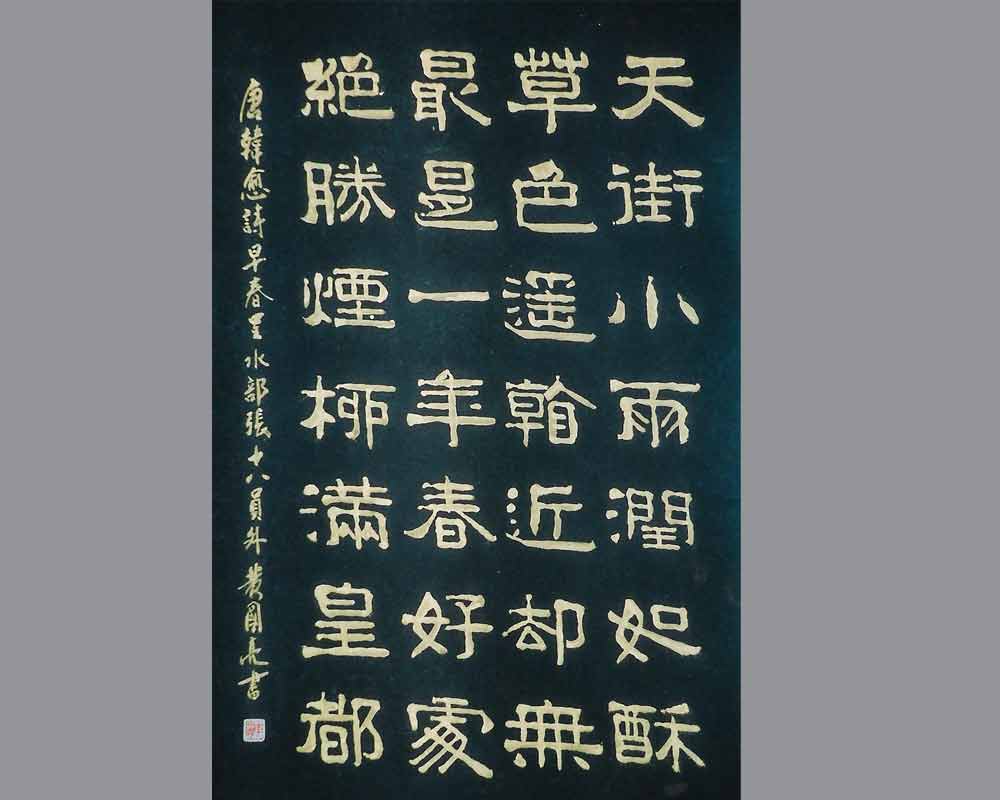 天街小雨潤如酥
草色遥看近却無
最是一年春好處
絶勝煙柳滿皇都
唐韓愈詩早春呈水部張十八員外 國亮書